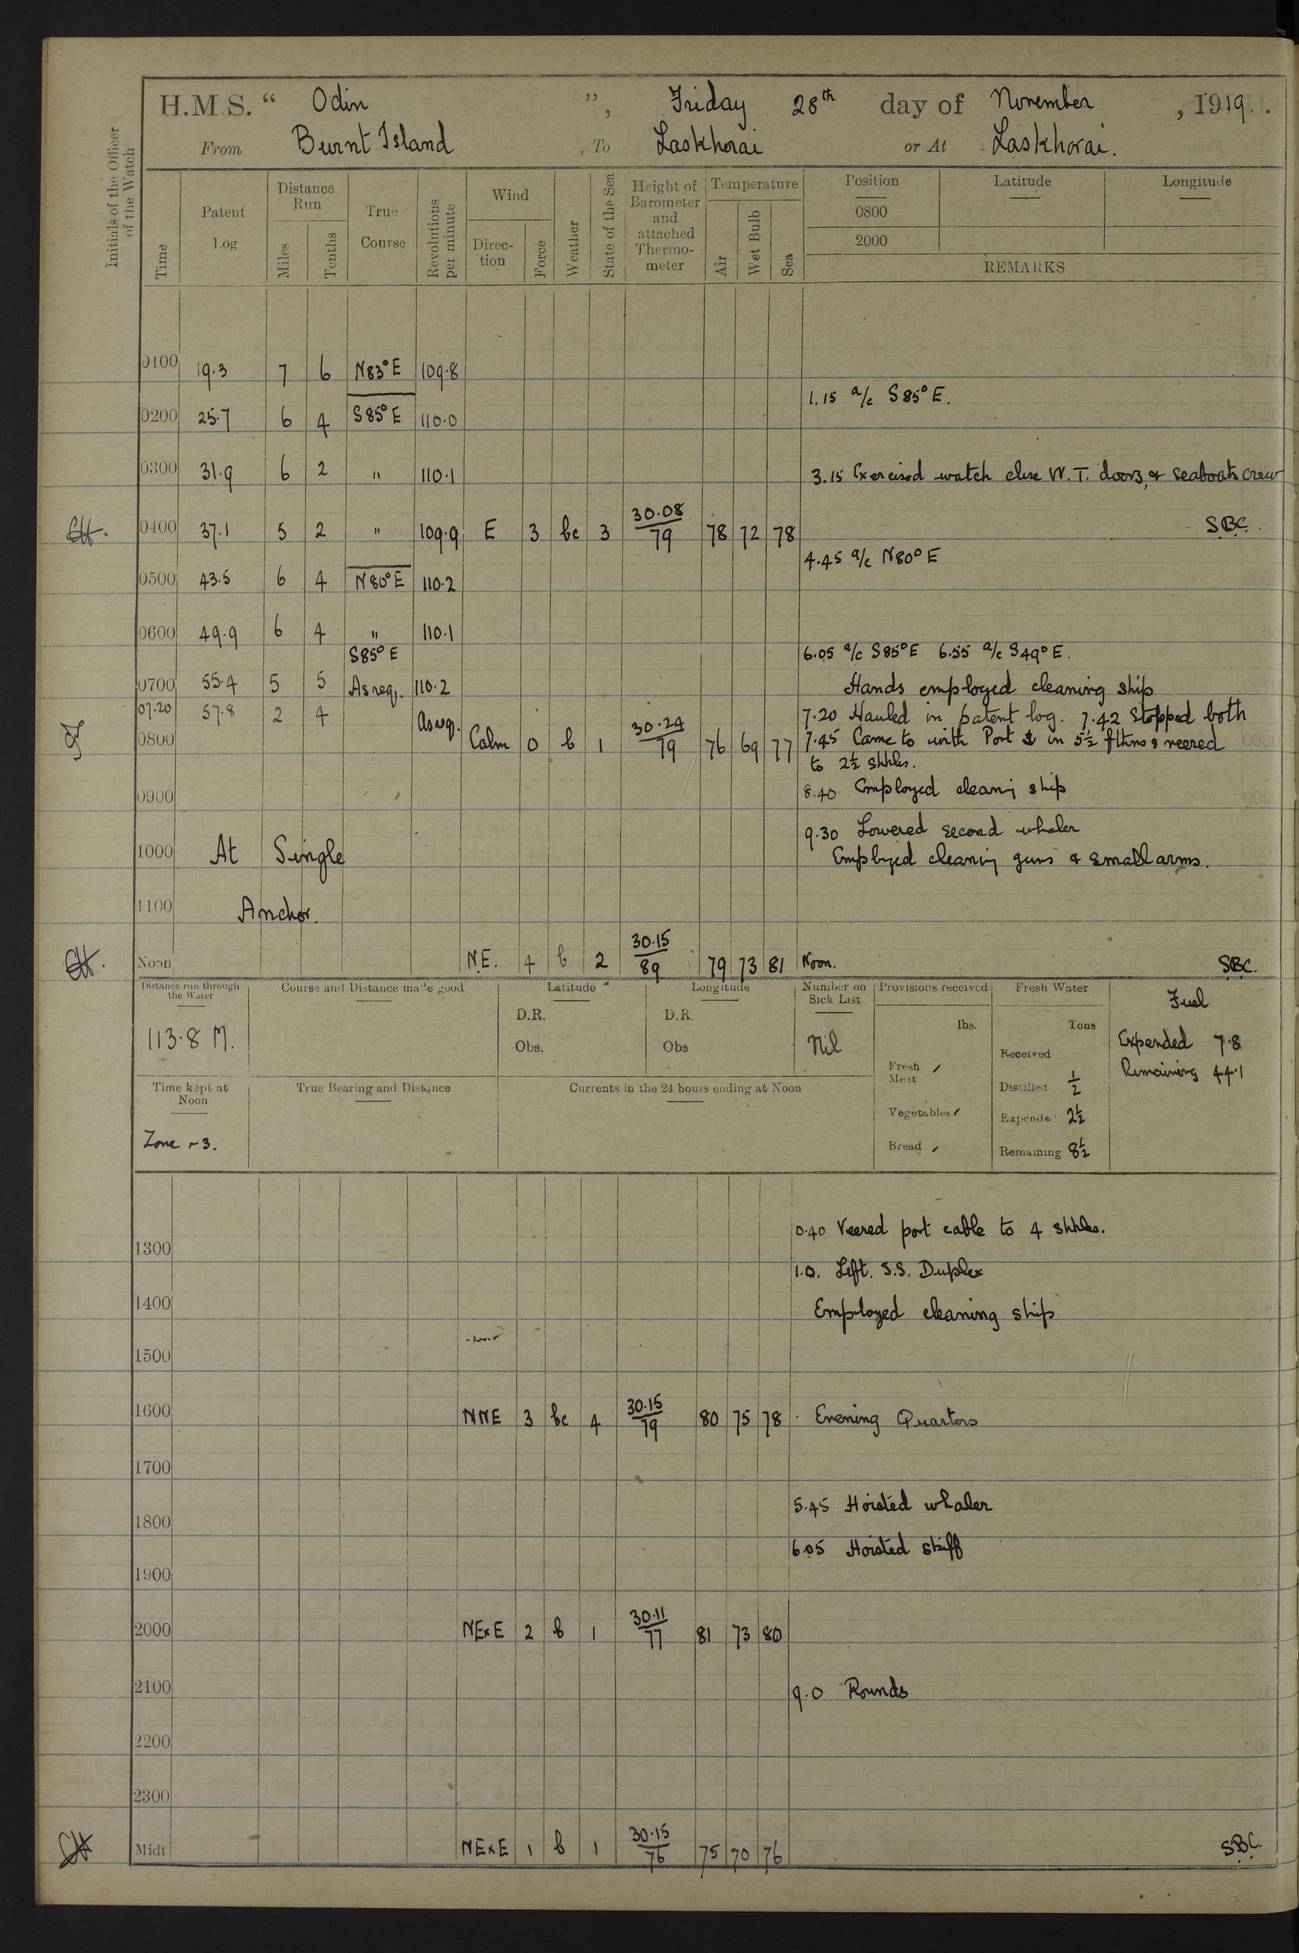 H.M.S. “ Odin ”, Friday 28th day of November , 1919.
From Burnt Island , To Laskhorai or At Laskhorai.
Initials of the Officer of the Watch
Time
Patent Log
Distance Run
Miles
Tenths
True Course
Revolutions per minute
Wind
Direc-tion
Force
Weather
State of the Sea
Height of Barometer and attached Thermo-meter
Temperature
Air
Wet Bulb
Sea
Position Latitude Longitude
0800
2000
REMARKS
0100 19.3 7 6 N83°E 109.8
1.15 a/c S85°E.
0200 25.7 6 4 S85°E 110.0
0300 31.9 6 2 " 110.1 3.15 Exercised watch close W.T. doors, & seaboats crew
0400 37.1 5 2 " 109.9 E 3 bc 3 30.08/79 78 72 78 S.B.C.
4.45 a/c N80°E
0500 43.5 6 4 N80°E 110.2
0600 49.9 6 4 " 110.1
S85°E 6.05 a/c S85°E 6.55 a/c S49°E.
0700 55.4 5 5 As req. 110.2 Hands employed cleaning ship
07.20 57.8 2 4 As req. 7.20 Hauled in patent log. 7.42 Stopped both
0800 Calm 0 b 1 30.24/79 76 69 77 7.45 Came to with Port ⚓ in 5½ fthms & veered
to 2½ shkles.
0900 8.40 Employed cleaning ship
9.30 Lowered second whaler
1000 At Single Employed cleaning guns & small arms.
1100 Anchor.
Noon N.E. 4 b 2 30.15/89 79 73 81 Noon. S.B.C.
Distance run through the Water
Course and Distance made good
Latitude
Longitude
Number on Sick List
Provisions received
Fresh Water
Fuel
113.8 M.
D.R. D.R.
Obs. Obs
Nil
lbs. Tons
Fresh Meat
Vegetables
Bread
Received
Distilled ½
Expended 2½
Remaining 8½
Expended 7.8
Remaining 44.1
Time kept at Noon
True Bearing and Distance
Currents in the 24 hours ending at Noon
Zone -3.
0.40 Veered port cable to 4 shkles.
1300
1.0. Left. S.S. Duplex
1400 Employed cleaning ship
1500
1600 NNE 3 bc 4 30.15/79 80 75 78 Evening Quarters
1700
5.45 Hoisted whaler
1800
6.05 Hoisted skiff
1900
2000 NExE 2 b 1 30.11/77 81 73 80
2100 9.0 Rounds
2200
2300
Midt NExE 1 b 1 30.15/76 75 70 76 S.B.C.